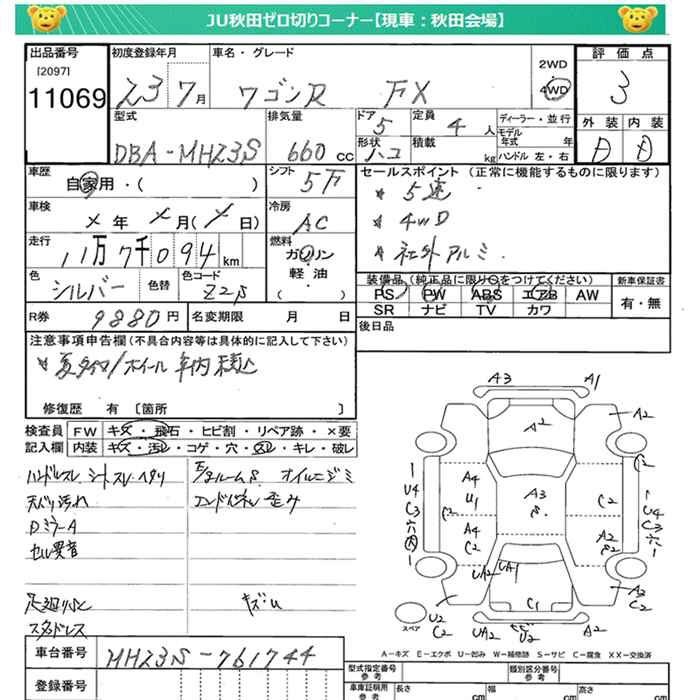 JU秋田ゼロ切りコーナー【現車：秋田会場】
出品番号
[2097]
11069
初度登録年月
23 7月
車名・グレード
ワゴンR FX
2WD
4WD
評価点
3
型式
DBA-MH23S
排気量
660cc
ドア
5
定員
4人
形状
ハコ
積載
kg
ディーラー・並行
モデル年式 年
ハンドル 左・右
外装 内装
D D
車歴
自家用・( )
シフト
5F
セールスポイント (正常に機能するものに限ります)
* 5速
* 4WD
* 社外アルミ
車検
年 月( 日)
冷房
AC
走行
11万7千094km
燃料
ガソリン
軽油
( )
色
シルバー
色替
色コード
Z2S
装備品(純正品に限り○をつけてください)
PS PW ABS エアB AW
SR ナビ TV カワ
新車保証書
有・無
R券 9880円
名変期限 月 日
後日品
注意事項申告欄(不具合内容等は具体的に記入して下さい)
* 夏タイヤ/ホイール 車内積込
修復歴 有 [箇所 ]
検査員
記入欄
FW キズ・飛石・ヒビ割・リペア跡・×要
内装 キズ・汚レ・コゲ・穴・スレ・キレ・破レ
ハンドルスレ シートスレ ヘタリ
天バリ汚れ
DミラーA
セル異音
E/gルームS オイルニジミ
エンドパネル 歪み
足廻りS
スタッドレス
キズU
A3 A1
A2 A2
A4
U1
A3
S
C2
A4
C2
A2
S2
U4
C3
C2
U4
C3
C2
UA2 UA1
C1
A3
C2
U2
C2
スペア
UA2
U2
A2
A－キズ E－エクボ U－凹み W－補修跡 S－サビ C－腐食 XX－交換済
車台番号 MH23S-761744
登録番号
型式指定番号
参考
類別区分番号
参考
車庫証明用
参考
長さ cm
幅 cm
高さ cm